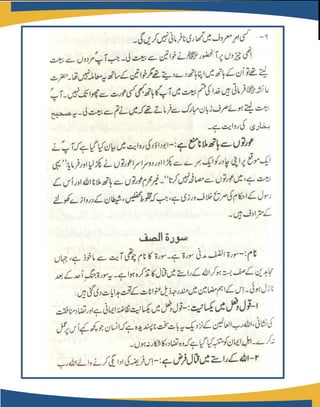 ۶- کسی امر معروف میں تمھاری نافرمانی نہیں کریں گی۔
انھی چیزوں پر آنحضور ﷺ نے خواتین سے بیعت لی۔ جب آپ مردوں سے بیعت
لیتے تھے تو ان کے ہاتھ میں اپنا ہاتھ دے دیتے تھے مگر خواتین کے ساتھ یہ معاملہ نہیں تھا۔ حضرت
عائشہؓ فرماتی ہیں خدا کی قسم بیعت میں آپ کا ہاتھ کبھی کسی عورت سے چھوا تک نہیں۔ آپ
بیعت لیتے ہوئے صرف زبان مبارک سے فرماتے تھے کہ میں نے تم سے بیعت لی۔ یہ صحیح
بخاری کی روایت ہے۔
عورتوں سے ہاتھ ملانا منع ہے:- ابوداؤد کی روایت میں بیان کیا گیا ہے کہ آپ نے
ایک موقع پر اپنی چادر کو ایک سرے سے پکڑا اور دوسرا سرا عورتوں نے پکڑ لیا اور فرمایا ”یہی
بیعت ہے، میں عورتوں سے مصافحہ نہیں کرتا“۔ غیر محرم عورتوں سے ہاتھ ملانا اللہ اور اس کے
رسول کے احکام کی صریح خلاف ورزی ہے، جب کہ مخلوط محفلیں، شیطان کے دروازے کھولنے
کے مترادف ہیں۔
سورة الصف
نام:- سورۃ الصف مدنی سورۃ ہے۔ سورۃ کا نام چوتھی آیت سے ماخوذ ہے، جہاں
مجاہدین کے صف بستہ ہو کر اللہ کے راستے میں قتال کا تذکرہ ہوا ہے۔ یہ سورۃ جنگ اُحد کے بعد
نازل ہوئی۔ اس کے اہم مضامین میں مندرجہ ذیل عنوانات کے تحت ہدایات دی گئی ہیں:
۱- قول و فعل میں یکسانیت:- قول و فعل میں یکسانیت تقاضۂ ایمانی ہے اور تضاد منافقت
کی نشانی، اللہ رب العالمین کے نزدیک یہ بات سخت ناپسندیدہ ہے کہ انسان جو کچھ کہے اُس پر عمل
نہ کرے۔ اہل ایمان کو متنبہ کیا گیا ہے کہ وہ تضاد کا شکار نہ ہوں۔
۲- اللہ کے راستے میں قتال فرض ہے:- اس فریضہ کی ادائیگی کرنے والے اللہ رب